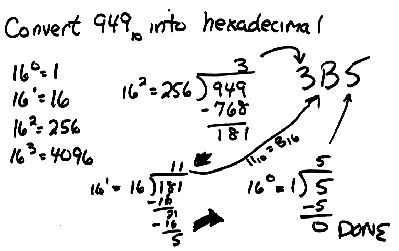 Convert 949₁₀ into hexadecimal
16⁰=1
16¹=16
16²=256
16³=4096
3
16²=256)949
-768
181
3B5
11₁₀=B₁₆
11
16¹=16)181
-16
21
-16
5
5
16⁰=1)5
-5
0 DONE